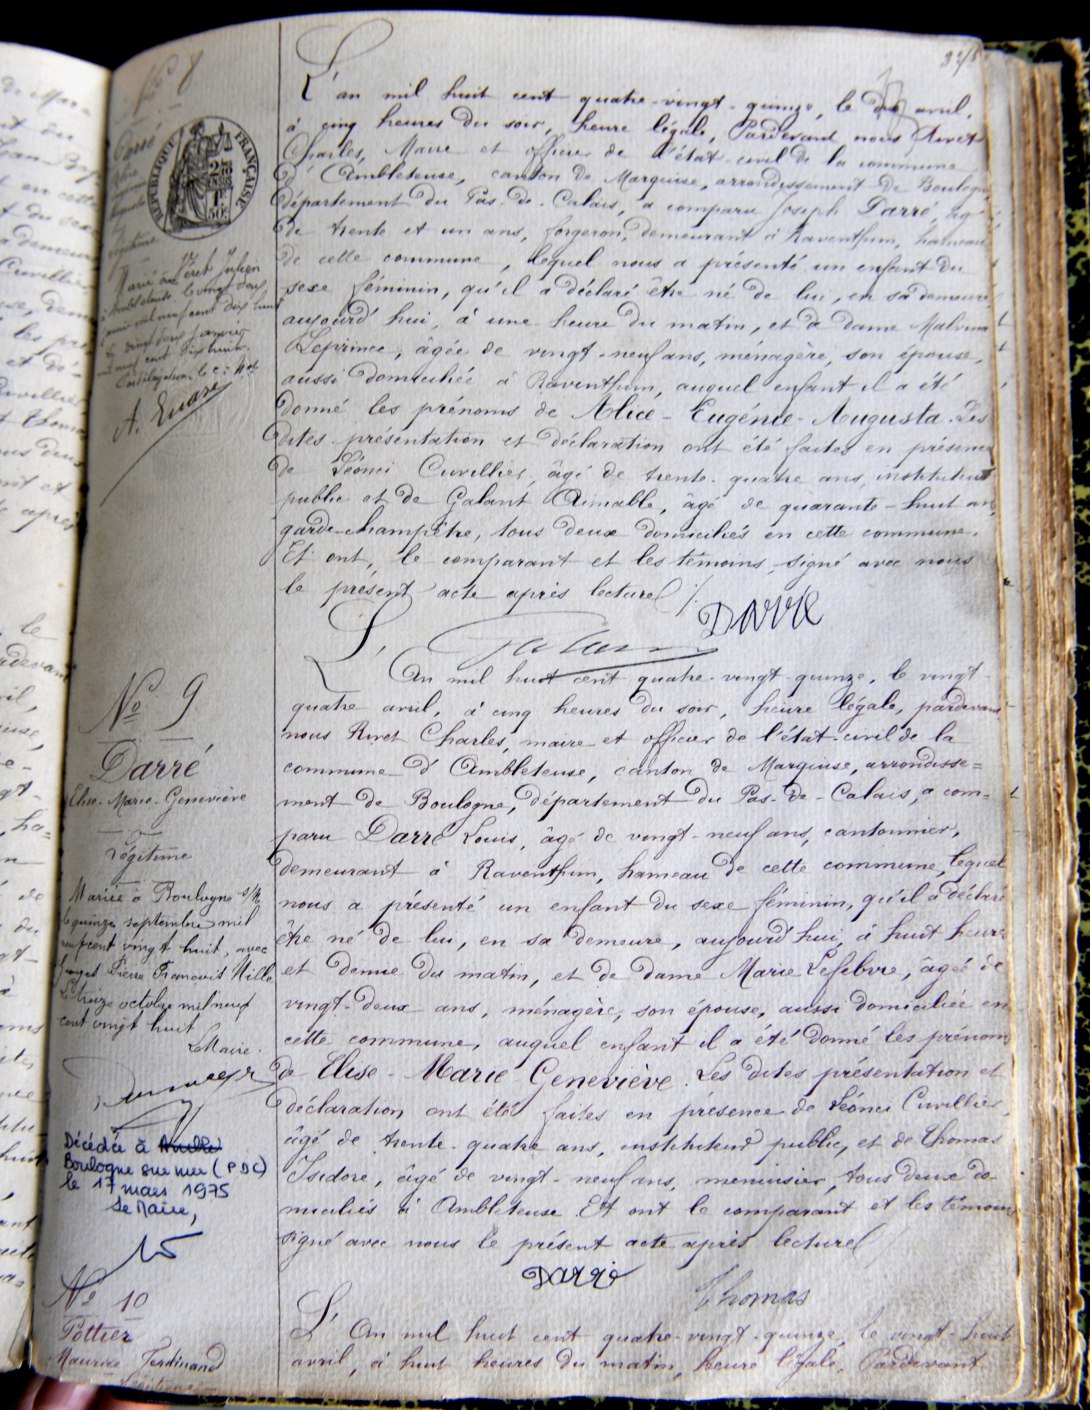 N° 8
Darré
RÉPUBLIQUE FRANÇAISE
1F
50c
légitime
Mariée à
Péret Julien
Ambleteuse le vingt deux
janvier mil neuf cent dix huit
Le vingt deux janvier
mil neuf cent dix huit
A. Evrard
L'an mil huit cent quatre-vingt-quinze, le dix avril,
à cinq heures du soir, heure légale, Pardevant nous Rivet
Charles, Maire et officier de l'état-civil de la commune
d'Ambleteuse, canton de Marquise, arrondissement de Boulogne,
département du Pas-de-Calais, a comparu Joseph Darré, âgé
de trente et un ans, forgeron, demeurant à Raventhun, hameau
de cette commune, lequel nous a présenté un enfant du
sexe féminin, qu'il a déclaré être né de lui, en sa demeure
aujourd'hui, à une heure du matin, et de dame Malvina
Leprince, âgée de vingt-neuf ans, ménagère, son épouse,
aussi domiciliée à Raventhun, auquel enfant il a été
donné les prénoms de Alice-Eugénie-Augusta. Les
dites présentation et déclaration ont été faites en présence
de Léonci Cuvillier, âgé de trente-quatre ans, instituteur
public et de Galant Aimable, âgé de quarante-huit ans,
garde-champêtre, tous deux domiciliés en cette commune.
Et ont, le comparant et les témoins, signé avec nous
le présent acte après lecture ./.
Darré
Galant
N° 9
Darré
Elise-Marie-Geneviève
Légitime
Mariée à Boulogne s/M
le quinze septembre mil
neuf cent vingt huit, avec
Pierre François Hille
Le treize octobre mil neuf
cent vingt huit
Le Maire.
Décédée à
Boulogne sur mer (PDC)
le 17 mars 1975
Le Maire,
L'An mil huit cent quatre-vingt-quinze, le vingt-
quatre avril, à cinq heures du soir, heure légale, pardevant
nous Rivet Charles, maire et officier de l'état-civil de la
commune d'Ambleteuse, canton de Marquise, arrondisse=
ment de Boulogne, département du Pas-de-Calais, a com=
paru Darré Louis, âgé de vingt-neuf ans, cantonnier,
demeurant à Raventhun, hameau de cette commune, lequel
nous a présenté un enfant du sexe féminin, qu'il a déclaré
être né de lui, en sa demeure, aujourd'hui, à huit heures
et demie du matin, et de dame Marie Lefebvre, âgée de
vingt-deux ans, ménagère, son épouse, aussi domiciliée en
cette commune, auquel enfant il a été donné les prénoms
de Elise-Marie Geneviève. Les dites présentation et
déclaration ont été faites en présence de Léonci Cuvillier,
âgé de trente-quatre ans, instituteur public, et de Thomas
Isidore, âgé de vingt-neuf ans, menuisier, tous deux do-
miciliés à Ambleteuse. Et ont le comparant et les témoins
signé avec nous le présent acte après lecture
Darré
Thomas
N° 10
Pottier
Maurice Ferdinand
Légitime
L'An mil huit cent quatre-vingt-quinze, le vingt-huit
avril, à huit heures du matin, heure légale, Pardevant